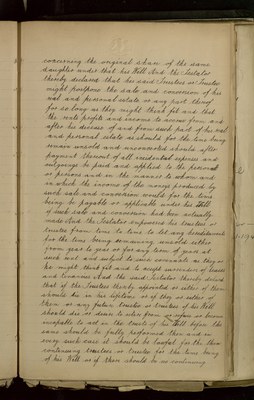 concerning the original share of the same
daughter under that his Will And the Testator
thereby declared that his said Trustees or Trustee
might postpone the sale and conversion of his
real and personal estate or any part thereof
for so long as they might think fit and that
the rents profits and income to accrue from and
after his decease of and from such part of his real
and personal estate as should for the time being
remain unsold and unconverted should after
payment thereout of all incidental expenses and
outgoings be paid and applied to the person
or persons and in the manner to whom and
in which the income of the moneys produced by
such sale and conversion would for the time
being be payable or applicable under his Will
if such sale and conversion had been actually
made And the Testator empowered his trustees or
trustee from time to time to let any hereditaments
for the time being remaining unsold either
from year to year or for any term of years at
such rent and subject to such covenants as they or
he might think fit and to accept surrenders of leases
and tenancies And the said Testator thereby declared
that if the Trustees thereby appointed or either of them
should die in his lifetime or if they or either of
them or any future trustee or trustees of his Will
should die or desire to retire from or refuse or become
incapable to act in the trusts of his Will before the
same should be fully performed then and in
every such case it should be lawful for the then
continuing trustees or trustee for the time being
of his Will or if there should be no continuing